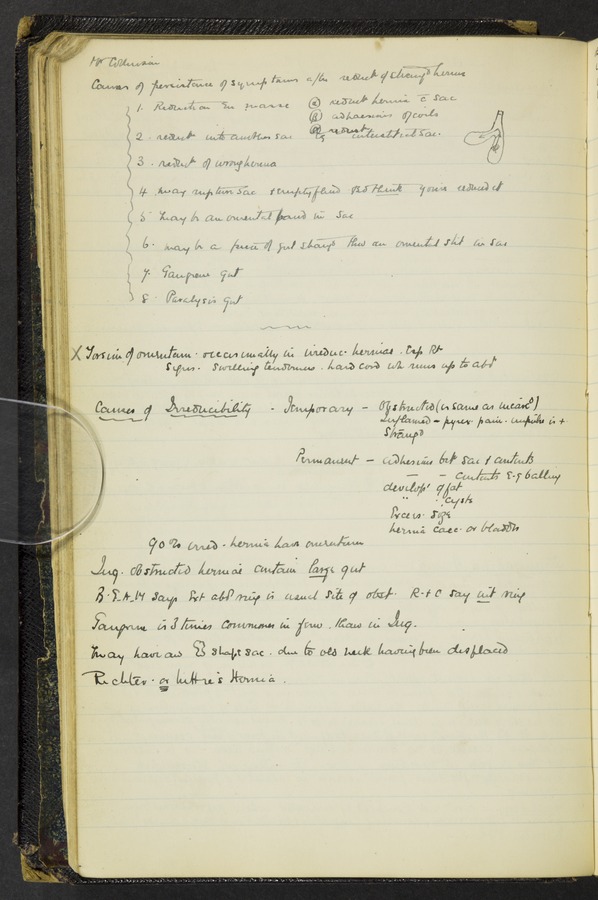 Causes of persistence of symptoms after reduct of strangd hernia
1. Reduction En masse (a) reduct hernia c sac
(B) adhaesions of coils
2. reduct into another sac eg interstit sac.
3. reduct of wrong hernia
4. may rupture sac & empty fluid and think you've reduced it
5. may be an omental band in sac
6. may be a piece of gut strangd thro an omental slit in sac
7. Gangrene gut
8. Paralysis gut
X Torsion of omentum. occurs usually in irreduc. hernias. Esp Rt
Signs. Swelling tenderness. hard cord wh runs up to abd
Causes of Irreducibility - Temporary - Obstructed (is same as incarcd)
Inflamed - pyrex. pain. impulse is +
Strangd
Permanent - adhesions bet sac & contents
— - contents E.g balling
develop' of fat
" " cysts
Excess. Size
hernia caec. or bladder
90% irred. hernia have omentum
Ing. obstructed hernias contain large gut
B.E.A.M says Ext abd ring is usual site of obst. R+C say int ring
Gangrene is 3 times commoner in fem. than in Ing.
May have an 8 shape sac. due to old neck having been displaced
Richter. or Littre's Hernia.